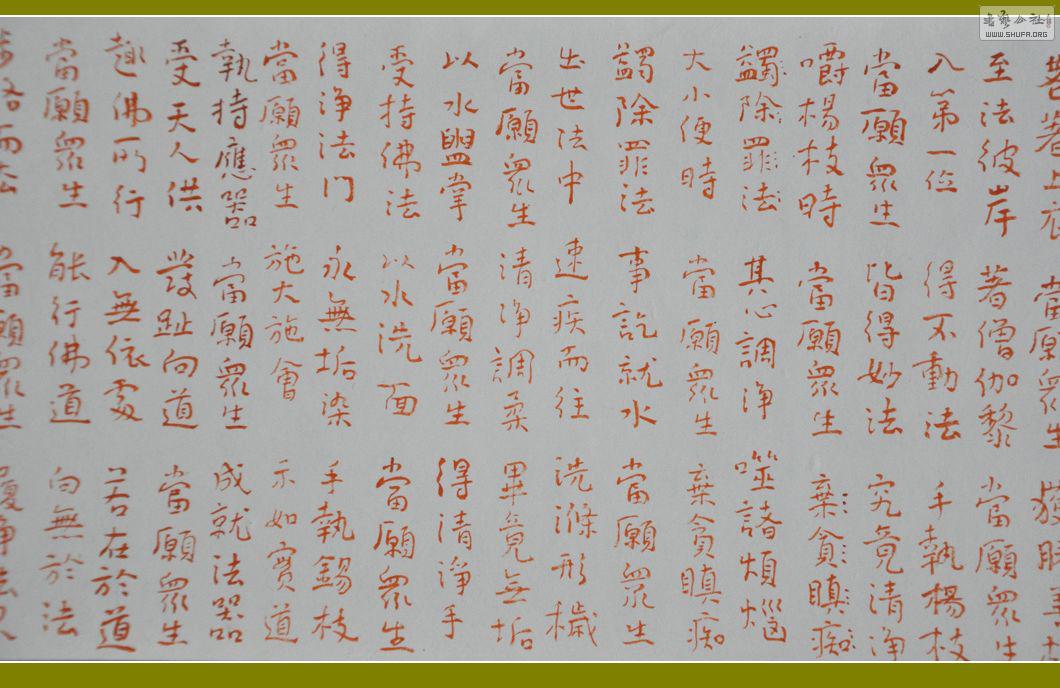 著上衣 當願眾生
至法彼岸 著僧伽黎 當願眾生
入第一位 得不動法 手執楊枝
當願眾生 皆得妙法 究竟清淨
嚼楊枝時 當願眾生 棄貪瞋癡
蠲除罪法 其心調淨 噬諸煩惱
大小便時 當願眾生 棄貪瞋痴
蠲除罪法 事訖就水 當願眾生
出世法中 速疾而往 洗滌形穢
當願眾生 清淨調柔 畢竟無垢
以水盥掌 當願眾生 得清淨手
受持佛法 以水洗面 當願眾生
得淨法門 永無垢染 手執錫枝
當願眾生 施大施會 示如實道
執持應器 當願眾生 成就法器
受天人供 發趾向道 當願眾生
趣佛所行 入無依處 若在於道
當願眾生 能行佛道 向無於法
路而去 當願眾生 淨法
書藝公社
WWW.SHUFA.ORG